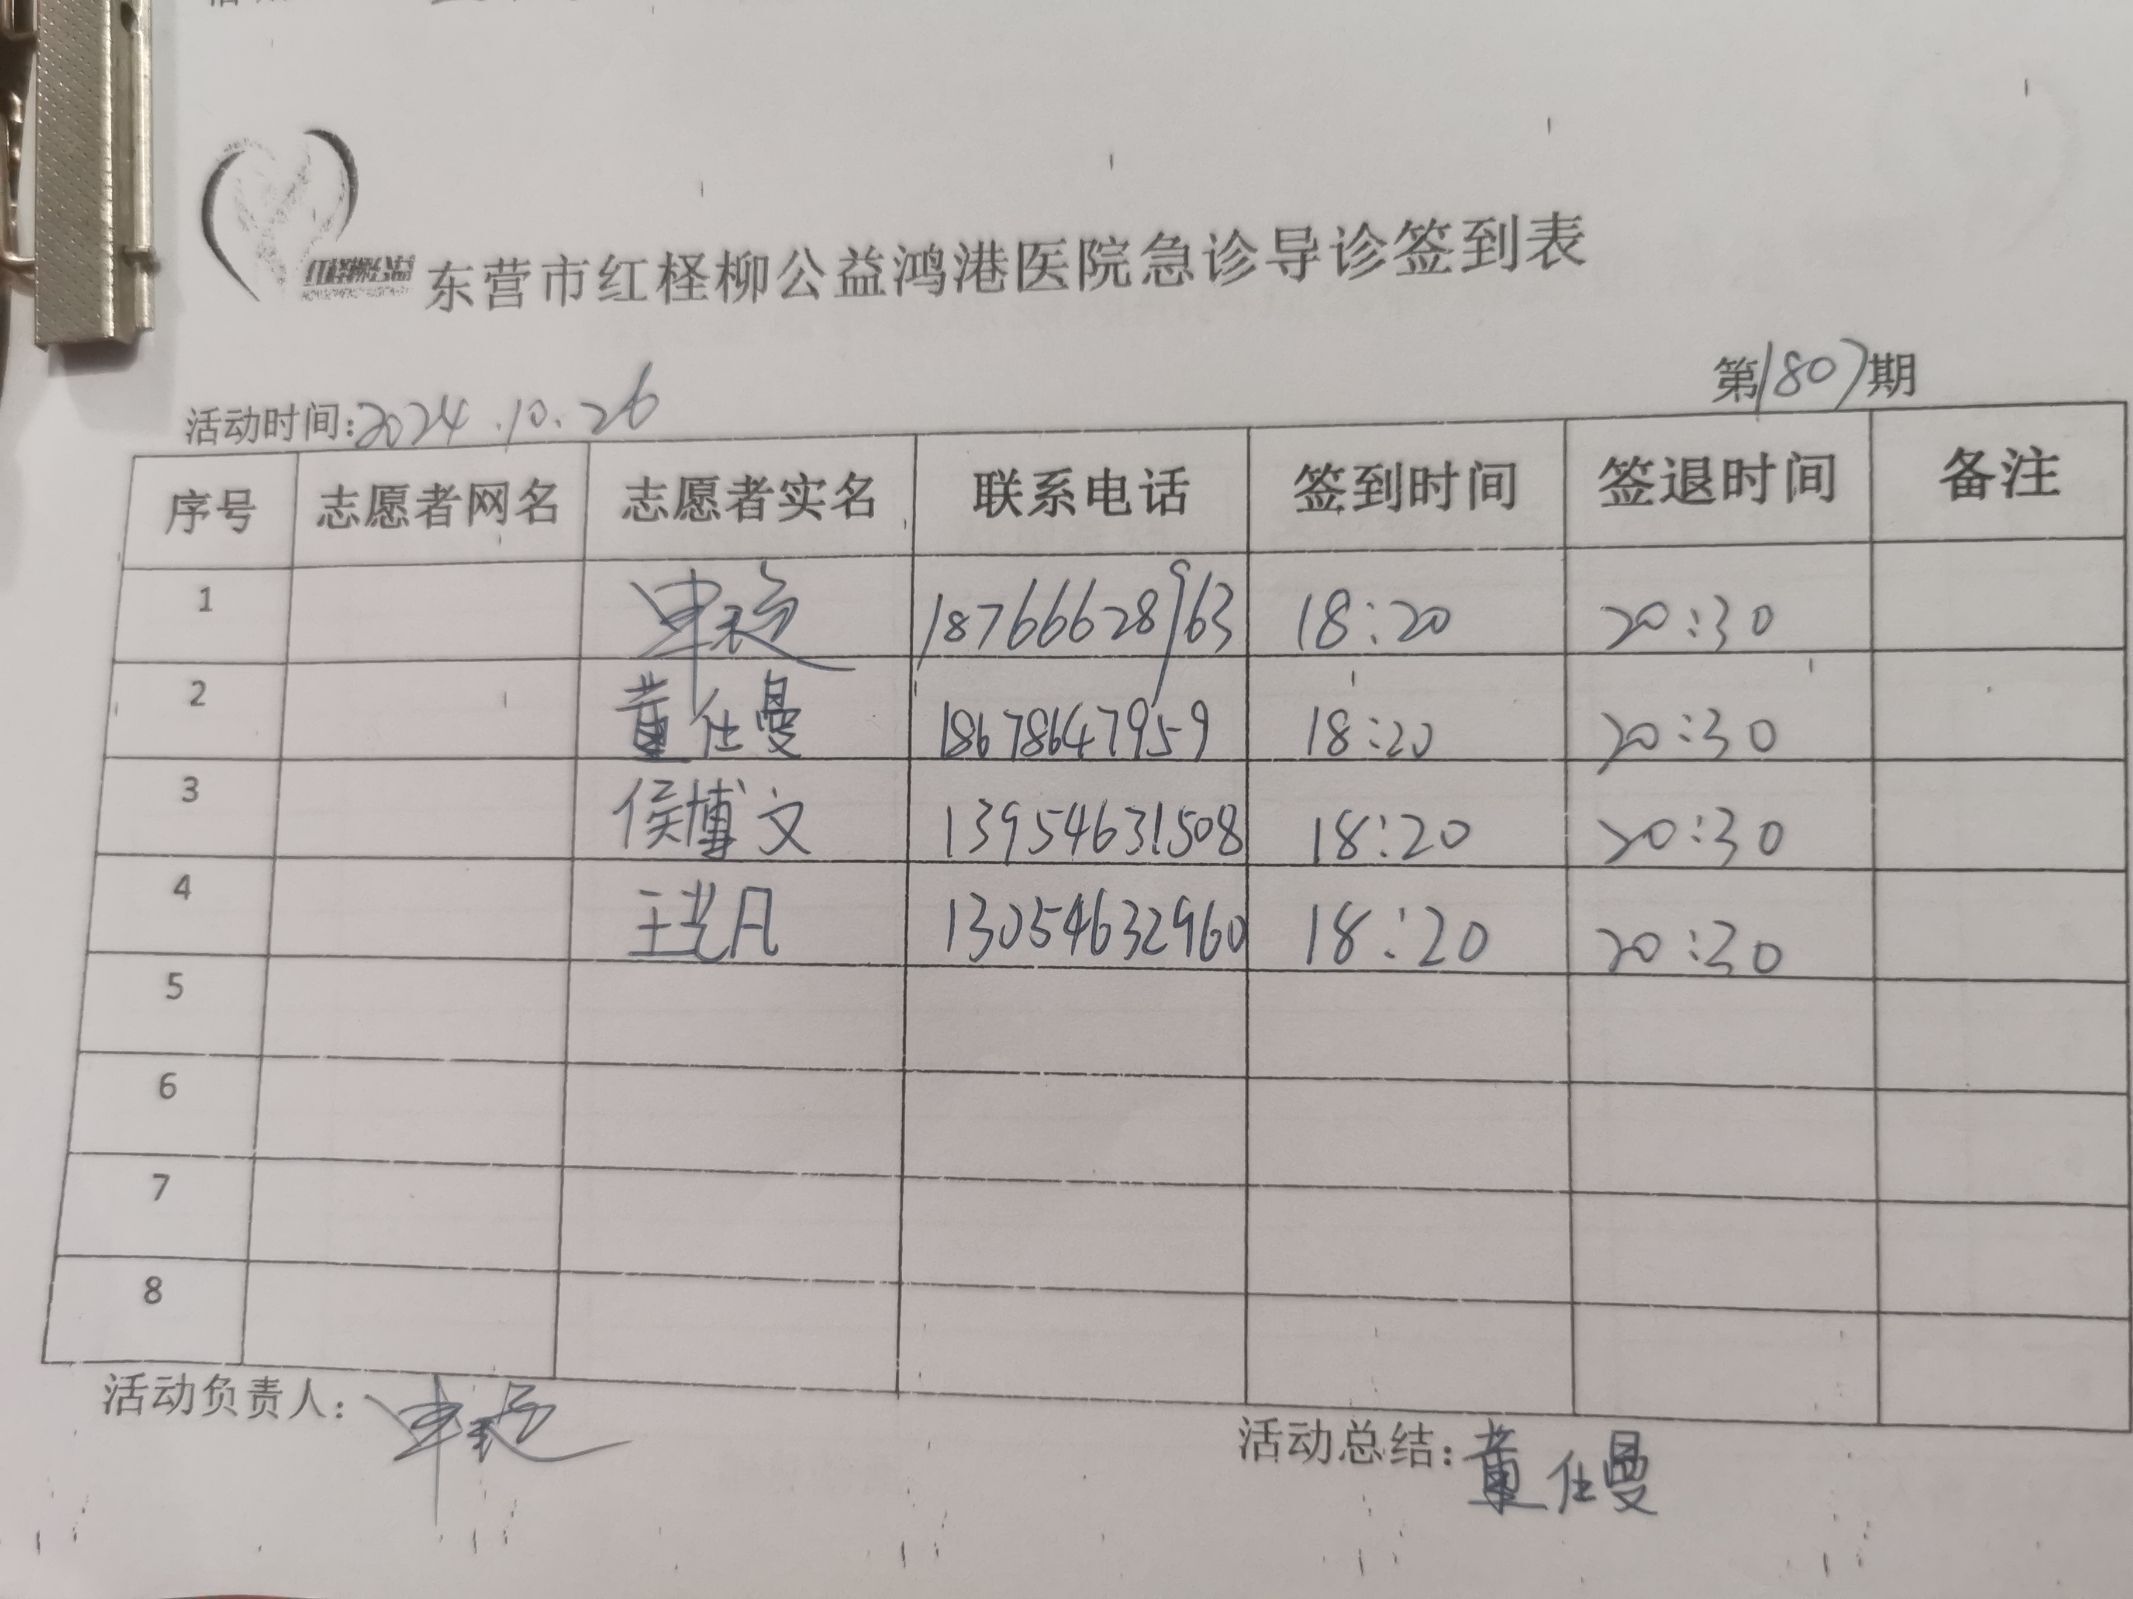 红柽柳公益
东营市红柽柳公益鸿港医院急诊导诊签到表
第1807期
活动时间:2024.10.26
序号 志愿者网名 志愿者实名 联系电话 签到时间 签退时间 备注
1 申 18766628963 18:20 20:30
2 董仕曼 18678647959 18:20 20:30
3 侯博文 13954631508 18:20 20:30
4 王艺凡 13054632960 18:20 20:30
5
6
7
8
活动负责人: 申
活动总结: 董仕曼